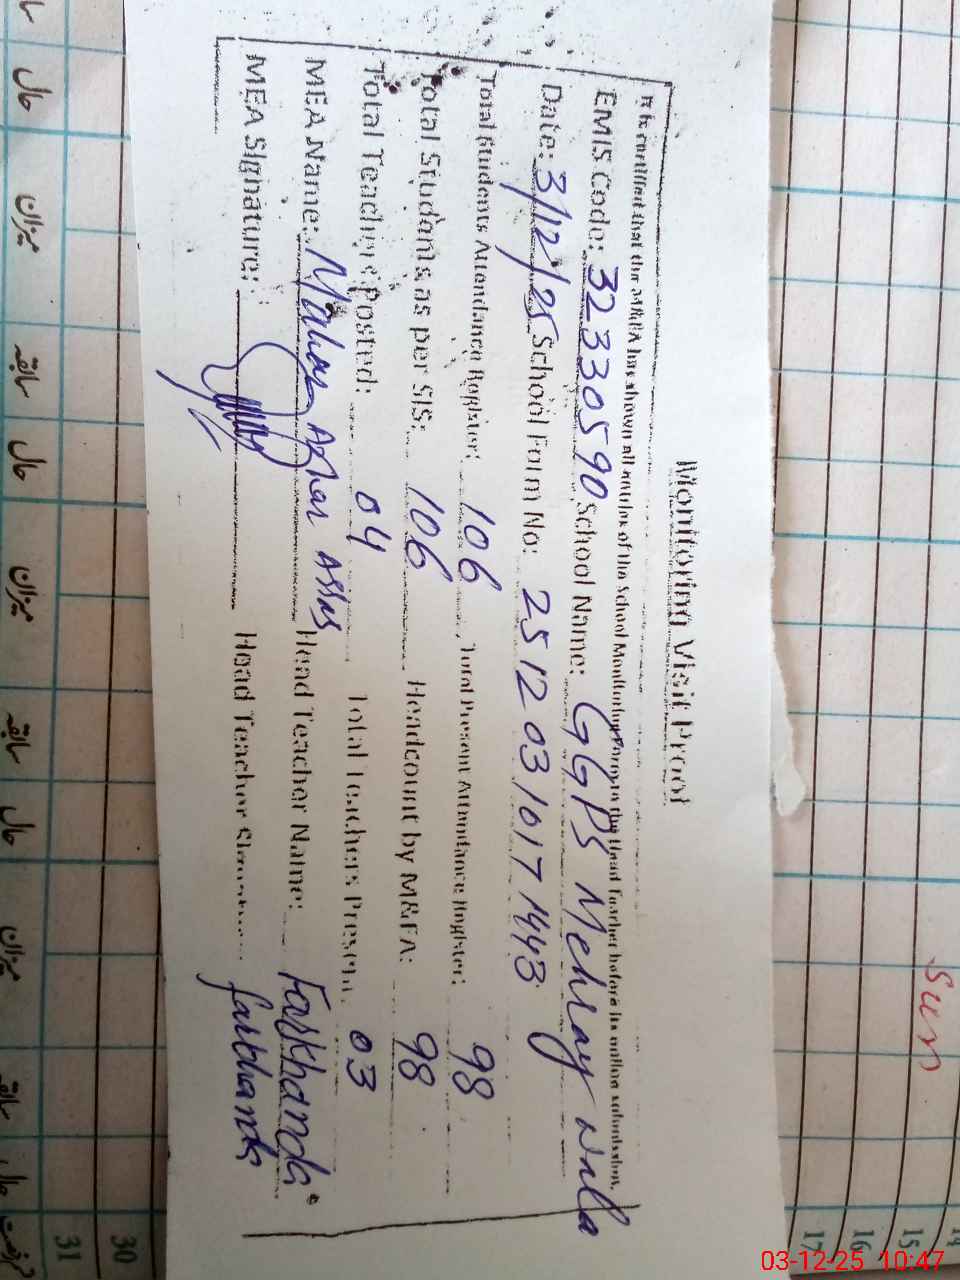 Monitoring Visit Proof
It is certified that the M&EA has shown all entries of the School Monitoring Form to the Head Teacher before its online submission.
EMIS Code: 32330590 School Name: GGPS Mehray wala
Date: 3/12/25 School Form No: 25120310171443
Total Students Attendance Register: 106 Total Present Attendance Register: 98
Total Students as per SIS: 106 Headcount by M&EA: 98
Total Teachers Posted: 04 Total Teachers Present: 03
MEA Name: Azhar Abbas Head Teacher Name: Farkhanda
MEA Signature: Head Teacher farkhanda
sum
14
15
16
17
30
31
حال
میزان
سابقہ
حال
میزان
سابقہ
حال
میزان
سابقہ
حال
03-12-25 10:47